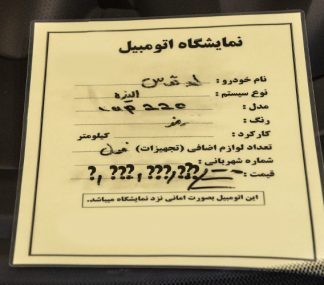 نمایشگاه اتومبیل
نام خودرو : لوتوس
نوع سیستم : الیزه
مدل : cup 220
رنگ :
کارکرد : کیلومتر
تعداد لوازم اضافی (تجهیزات) : فول
شماره شهربانی :
قیمت : ?,???,???,???
این اتومبیل بصورت امانی نزد نمایشگاه میباشد.